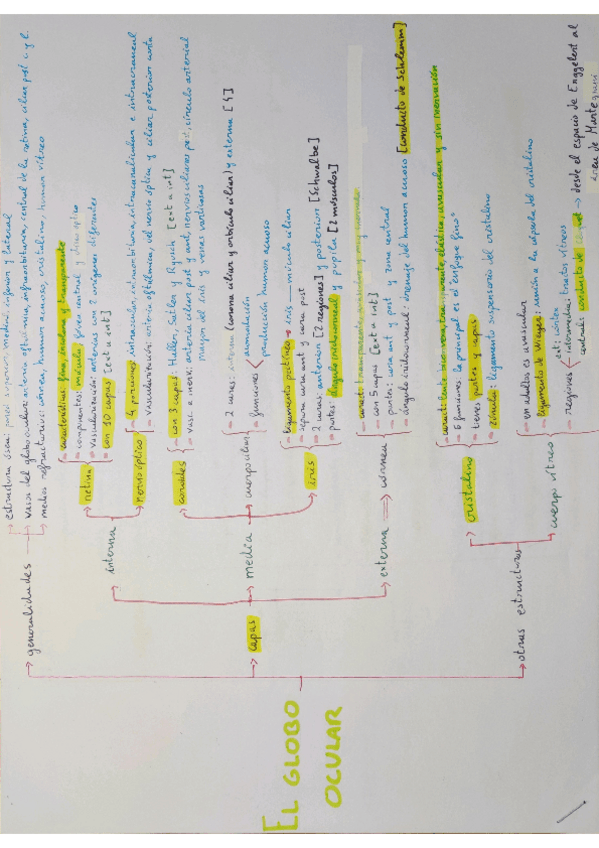 EL GLOBO
OCULAR
generalidades
estructura ósea: pared superior, medial, inferior y lateral
vasos del globo ocular: arteria oftálmica, infraorbitaria, central de la retina, ciliar post. c y l.
medios refractarios: córnea, humor acuoso, cristalino, humor vítreo
capas
interna
retina
- características: fina, incolora y transparente
- componentes: mácula, fóvea central y disco óptico
- vascularización: arterias con 2 orígenes diferentes
- con 10 capas [ext a int]
nervio óptico
- 4 porciones: intraocular, intraorbitaria, intracanalicular e intracraneal
- vascularización: arteria oftálmica, del nervio óptico y ciliar posterior corta
media
coroides
- con 3 capas: Haller, Satler y Ruysch [ext a int]
- vasc. e inerv: arteria ciliar post y ant, nervios ciliares post, círculo arterial
margen del iris y venas vorticosas
cuerpo ciliar
- 2 caras: interna (corona ciliar y orbículo ciliar) y externa [4]
- funciones
acomodación
producción humor acuoso
iris
- ligamento pectíneo → iris — músculo ciliar
- separa cara ant y cara post
- 2 caras: anterior [2 regiones] y posterior [Schwalbe]
- partes: ángulo iridocorneal y pupila [2 músculos]
externa → córnea
- caract: transparente, avascular y muy
- con 5 capas [ext a int]
- partes: cara ant y post y zona central
- ángulo iridocorneal: drenaje del humor acuoso [conducto de Schlemm]
otras estructuras
cristalino
- caract: lente biconvexa, transparente, elástica, avascular y sin inervación
- 6 funciones: la principal es el enfoque fino*
- tiene partes y capas
- zónula: ligamento suspensorio del cristalino
cuerpo vítreo
- en adultos es avascular
- ligamento de Wieger: unión a la cápsula del cristalino
- regiones
ext: córtex
intermedia: tractos vítreos
central: conducto de → desde el espacio de
área de Martegiani